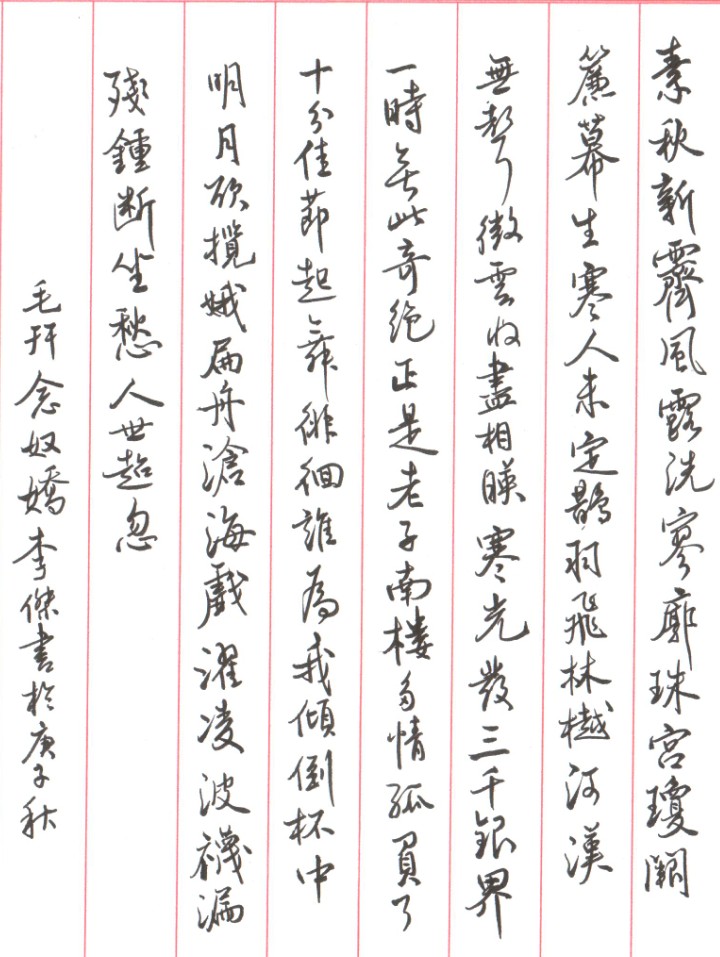 素秋新霽風露洗寥廓珠宮瓊闕
簾幕生寒人未定鵲羽飛林樾河漢
無聲微雲收盡相映寒光發三千銀界
一時無此奇絶正是老子南樓多情孤負了
十分佳節起舞徘徊誰為我傾倒杯中
明月欲攬娥扁舟滄海戲濯凌波襪漏
殘鍾断坐愁人世超忽
毛幵念奴嬌李傑書於庚子秋